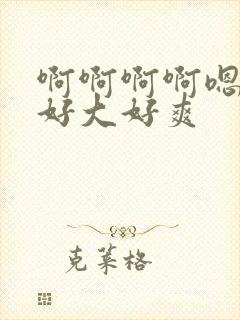 啊啊啊啊嗯
好大好爽
克莱格